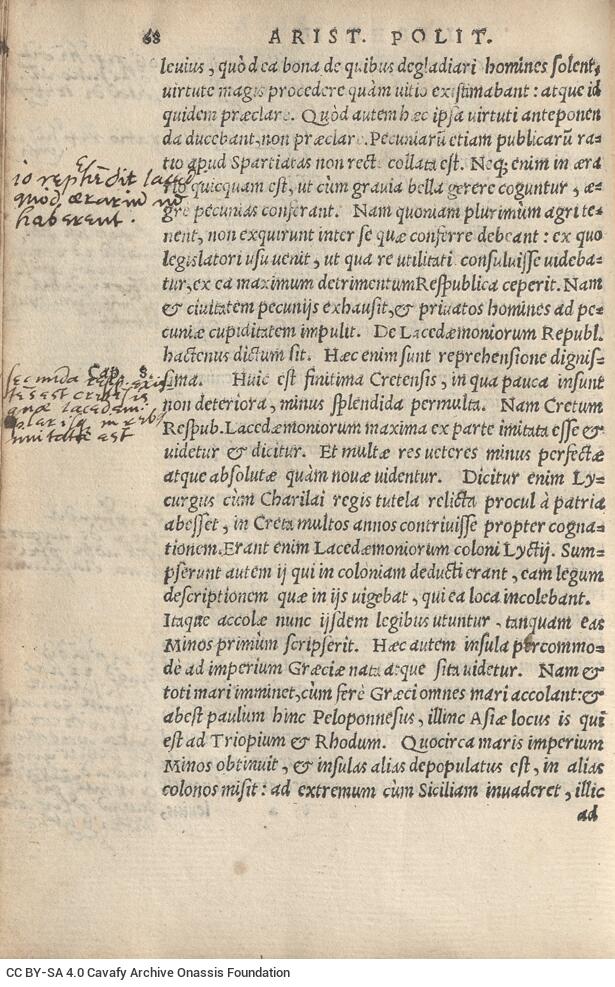 68 ARIST. POLIT.
leuius, quòd ea bona de quibus degladiari homines solent,
uirtute magis procedere quàm uitio existimabant: atque id
quidem præclare. Quòd autem hæc ipsa uirtuti anteponen
da ducebant, non præclare. Pecuniarũ etiam publicarũ ra-
tio apud Spartiatas non recte collata est. Neq; enim in æra
rio quicquam est, ut cùm grauia bella gerere coguntur, æ-
gre pecunias conferant. Nam quoniam plurimùm agri te-
nent, non exquirunt inter se quæ conferre debeant: ex quo
legislatori usu uenit, ut qua re utilitati consuluisse uideba-
tur, ex ea maximum detrimentum Respublica ceperit. Nam
& ciuitatem pecunijs exhausit, & priuatos homines ad pe-
cuniæ cupiditatem impulit. De Lacedæmoniorum Republ.
hactenus dictum sit. Hæc enim sunt reprehensione dignis-
Cap. 8.
sima. Huic est finitima Cretensis, in qua pauca insunt
non deteriora, minus splendida permulta. Nam Cretum
Respub. Lacedæmoniorum maxima ex parte imitata esse &
uidetur & dicitur. Et multæ res ueteres minus perfectæ
atque absolutæ quàm nouæ uidentur. Dicitur enim Ly-
curgus cùm Charilai regis tutela relicta procul à patria
abesset, in Creta multos annos contriuisse propter cogna-
tionem. Erant enim Lacedæmoniorum coloni Lyctij. Sum-
pserunt autem ij qui in coloniam deducti erant, eam legum
descriptionem quæ in ijs uigebat, qui ea loca incolebant.
Itaque accolæ nunc ijsdem legibus utuntur, tanquam eas
Minos primùm scripserit. Hæc autem insula percommo-
dè ad imperium Græciæ nata atque sita uidetur. Nam &
toti mari imminet, cùm ferè Græci omnes mari accolant: &
abest paulum hinc Peloponnesus, illinc Asiæ locus is qui
est ad Triopium & Rhodum. Quocirca maris imperium
Minos obtinuit, & insulas alias depopulatus est, in alias
colonos misit: ad extremum cùm Siciliam inuaderet, illic
ad
quod ærarium nõ
haberent.
CC BY-SA 4.0 Cavafy Archive Onassis Foundation